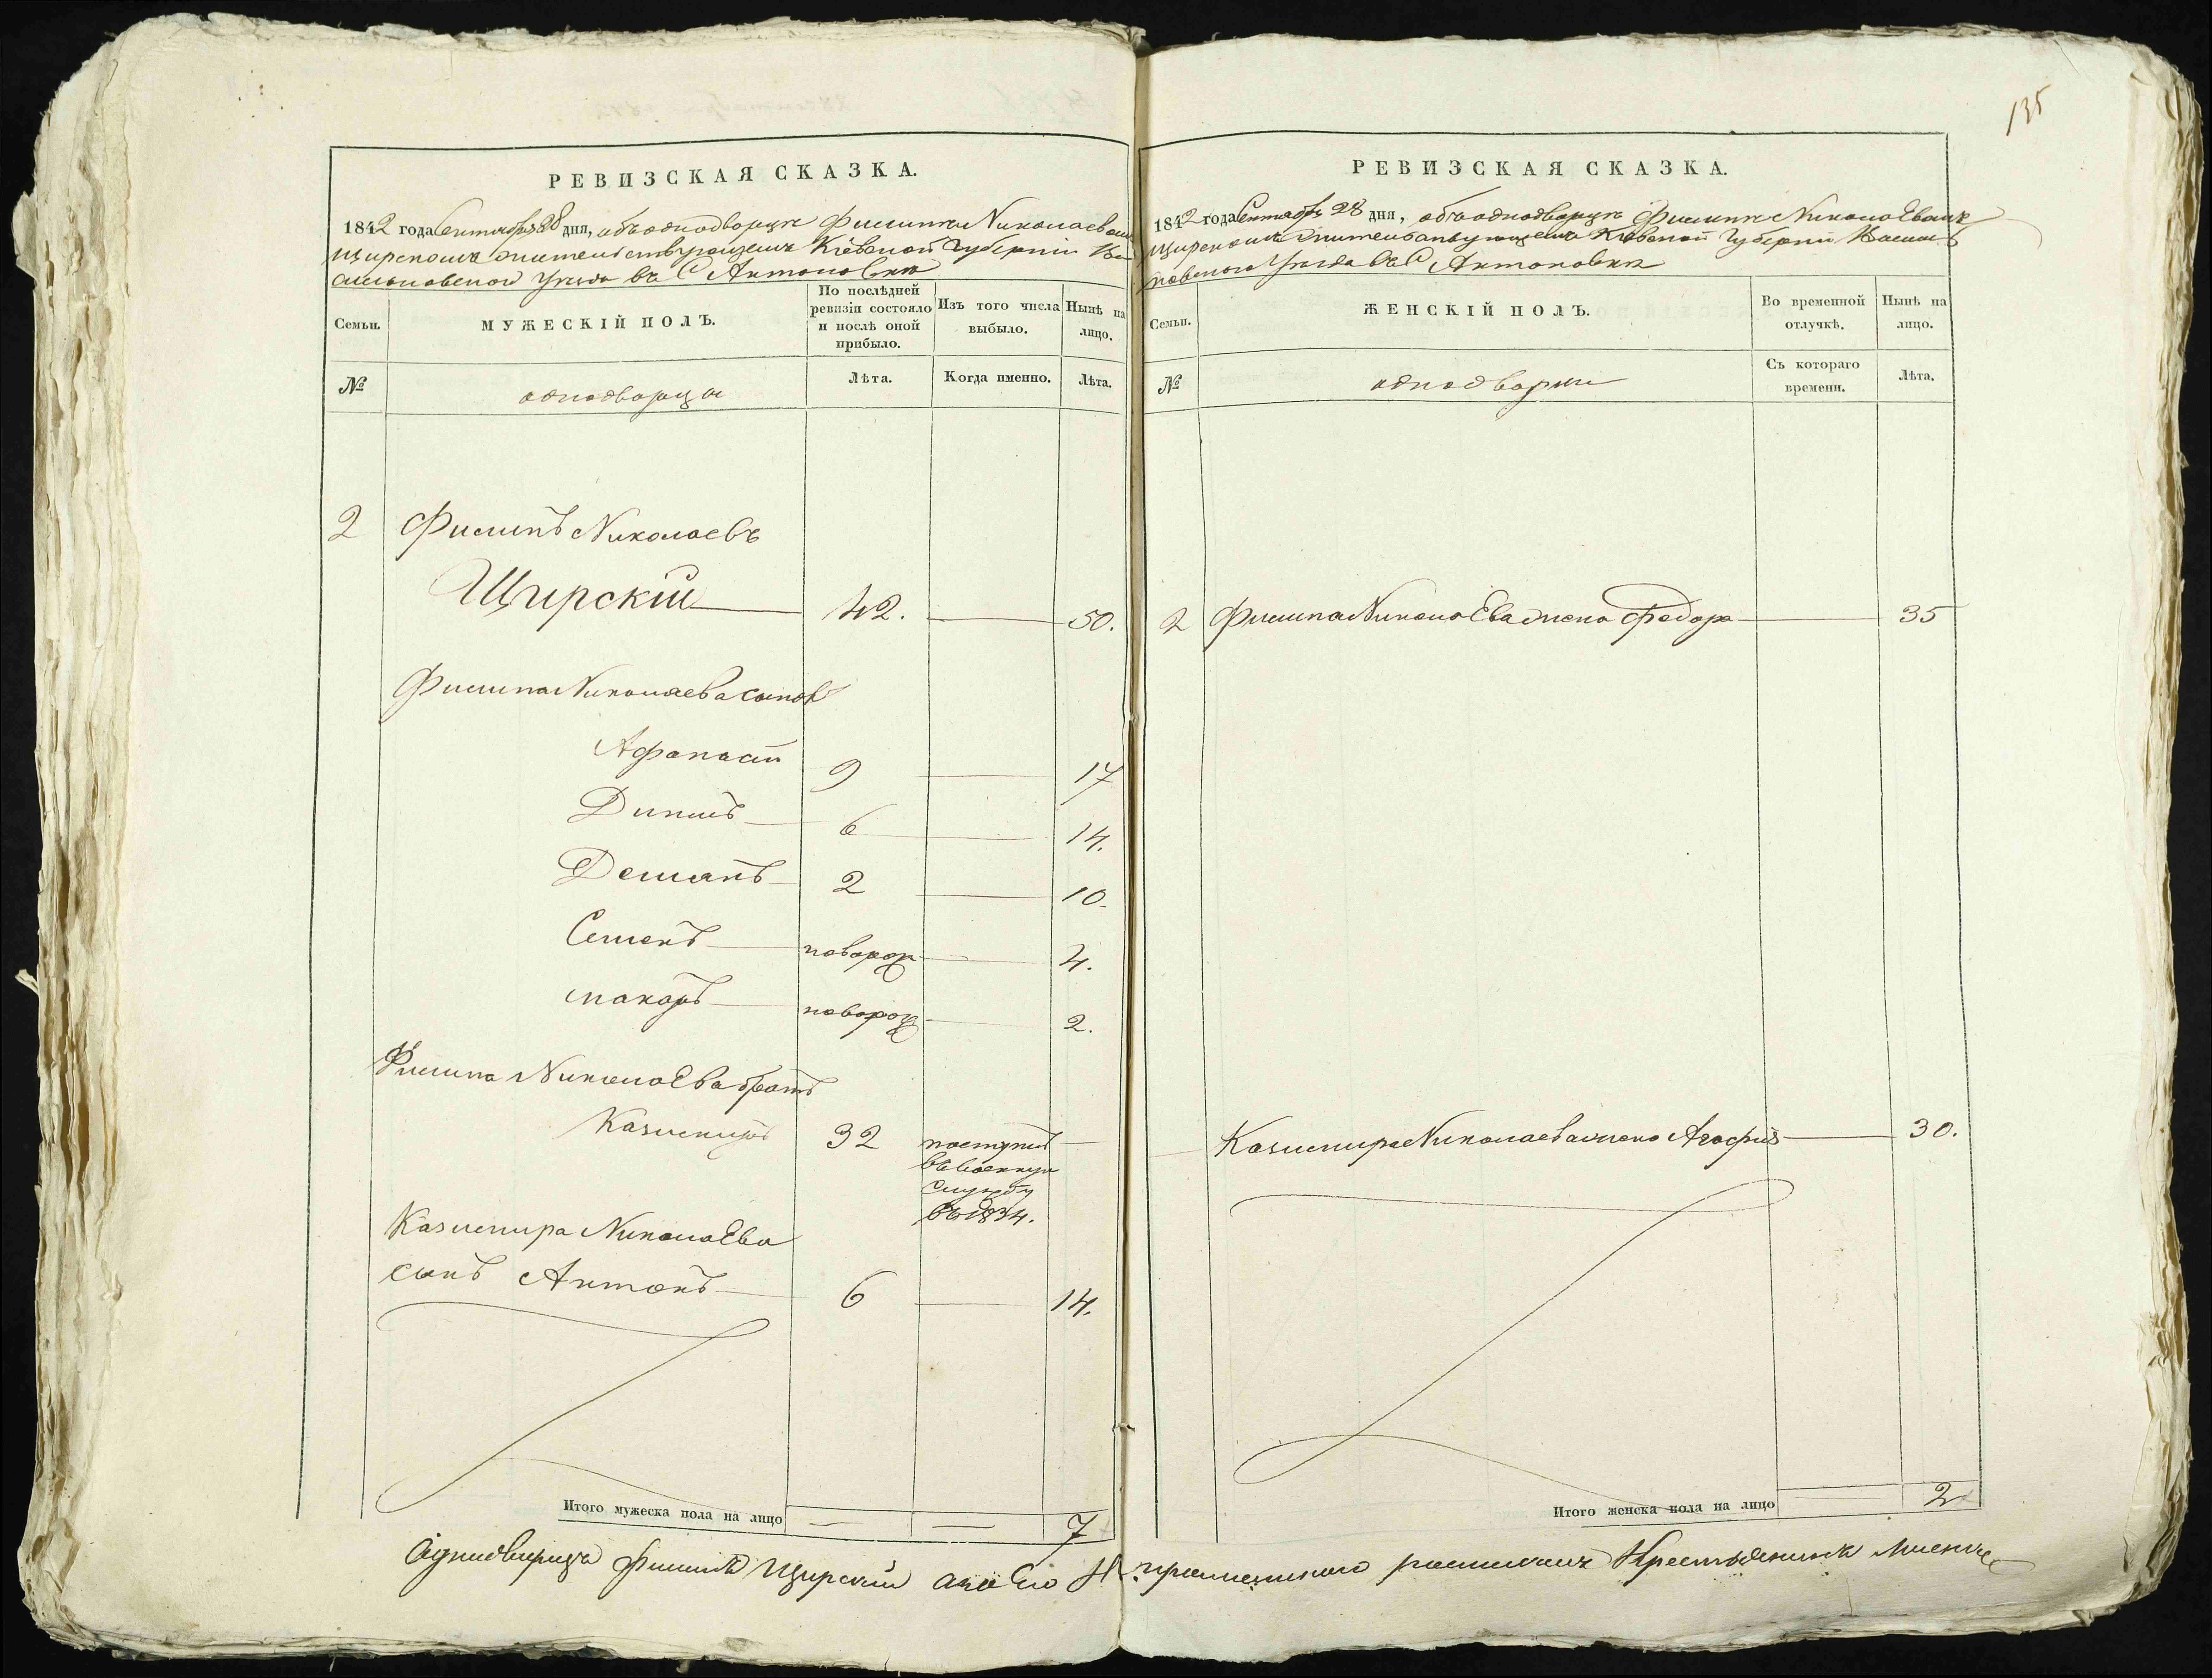 135
РЕВИЗСКАЯ СКАЗКА.
1842 года Сентября 28 дня, объ однодворцѣ Филиппѣ Николаевѣ
Щирскомъ жительствующемъ Кіевской Губерніи Ва
сильковского Уѣзда въ С Антоновкѣ
Семьи.
МУЖЕСКІЙ ПОЛЪ.
По послѣдней ревизіи состояло и послѣ оной прибыло.
Изъ того числа выбыло.
Нынѣ на лицо.
№
однодворцы
Лѣта.
Когда именно.
Лѣта.
2 Филипъ Николаевъ
Щирскій 42. 50.
Филипа Николаева сыновя
Афанасій 9 17
Данило 6 14.
Демянъ 2 10.
Семенъ новорож 4.
Макаръ новорож 2.
Филипа Николаева братъ
Казимиръ 32 поступилъ
въ военную
службу
въ 1834.
Казимира Николаева
сынъ Антонъ 6 14.
Итого мужеска пола на лицо — — 7
РЕВИЗСКАЯ СКАЗКА.
1842 года Сентября 28 дня, объ однодворцѣ Филиппѣ Николаевѣ
Щирскомъ жительствующемъ Кіевской Губерніи Василь
ковского Уѣзда въ С Антоновкѣ
Семьи.
ЖЕНСКІЙ ПОЛЪ.
Во временной отлучкѣ.
Нынѣ на лицо.
№
однодворки
Съ котораго времени.
Лѣта.
2 Филипа Николаева жена Федора 35
Казимира Николаева жена Агафія 30.
Итого женска пола на лицо 2
Однодворецъ Филипъ Щирский а за его Не